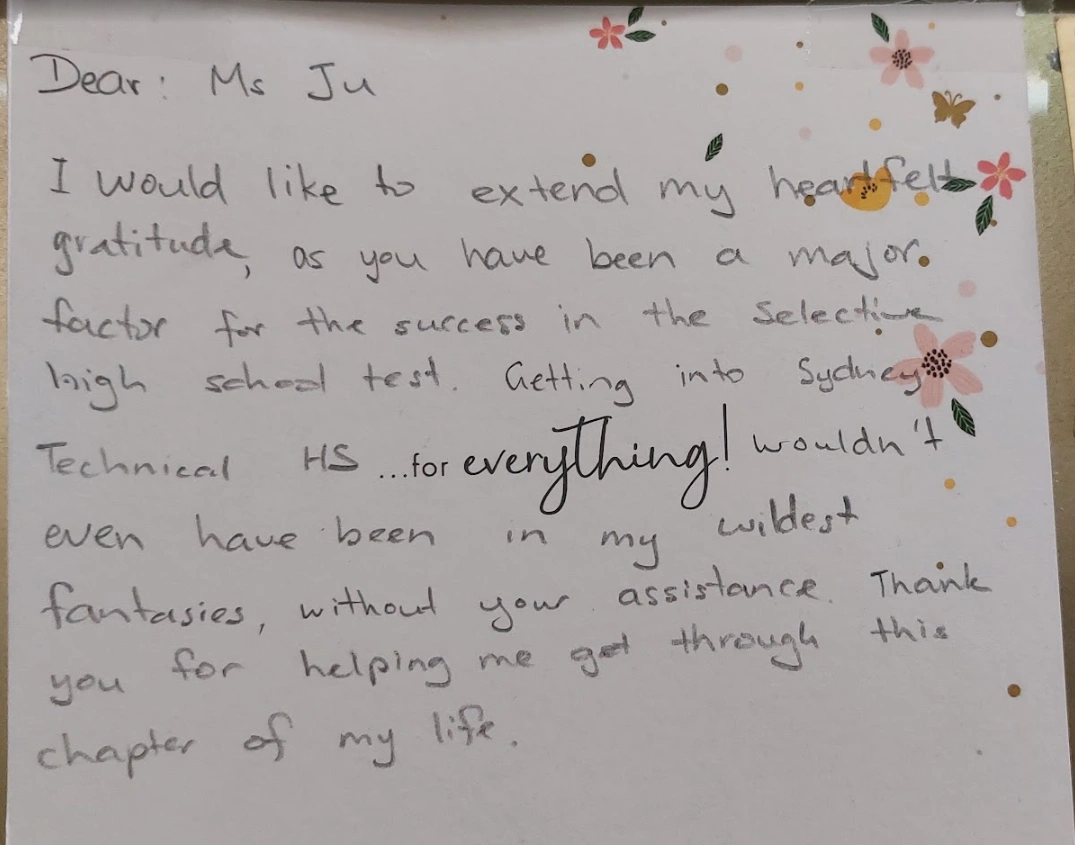 Dear: Ms Ju
I would like to extend my heartfelt
gratitude, as you have been a major
factor for the success in the Selective
high school test. Getting into Sydney
Technical HS ...for everything! wouldn't
even have been in my wildest
fantasies, without your assistance. Thank
you for helping me get through this
chapter of my life.